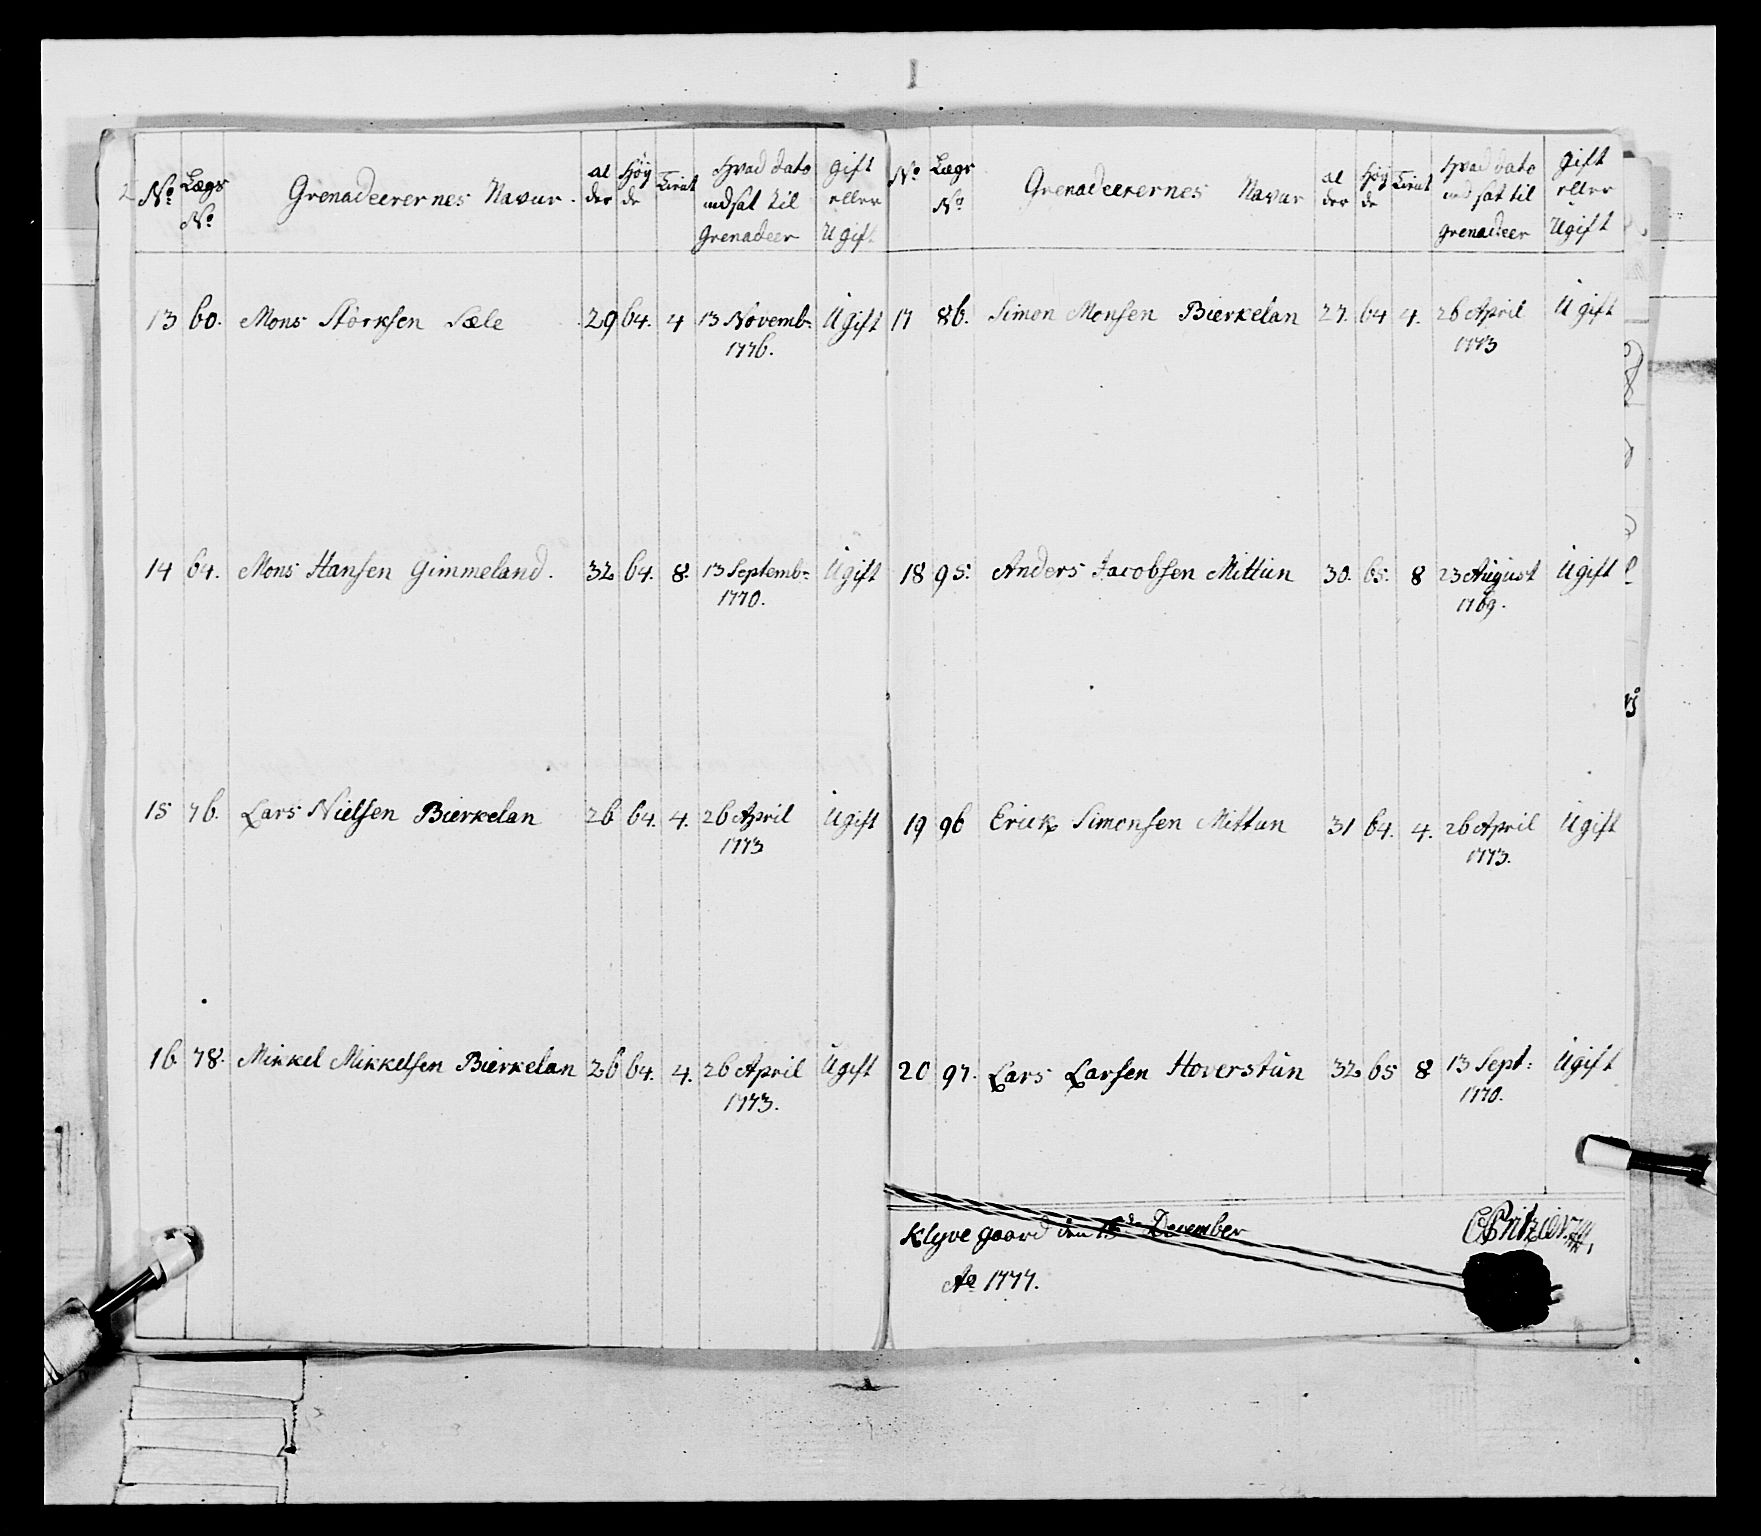 No Lægs No Grenadeerernes Navne. al der Høy de Tient Hvad dato indsat til Grenadeer gift eller Ugift
13 60. Mons Størksen Sæle 29 64. 4 13 Novemb: 1776. Ugift
14 64. Mons Hansen Gimmeland. 32 64. 8. 13 Septemb: 1770. Ugift
15 76. Lars Nielsen Bierkelan 26 64. 4. 26 April 1773 Ugift
16. 78. Mikkel Mikkelsen Bierkelan 26 64. 4. 26 April 1773. Ugift
No Lægs No Grenadeerernes Navne al der Høy de Tient Hvad dato indsat til grenadeer gift eller Ugift
17 86. Simon Monsen Bierkelan 27. 64 4. 26 April 1773 Ugift
18 95. Anders Jacobsen Mittun 30. 65. 8 23 August 1769. Ugift
19 96 Erick Simonsen Mittun 31 64. 4. 26 April 1773. Ugift
20 97. Lars Larsen Hoverstun 32 65 8 13 Sept: 1770. Ugift
Klyve gaard den December
Ao 1777.